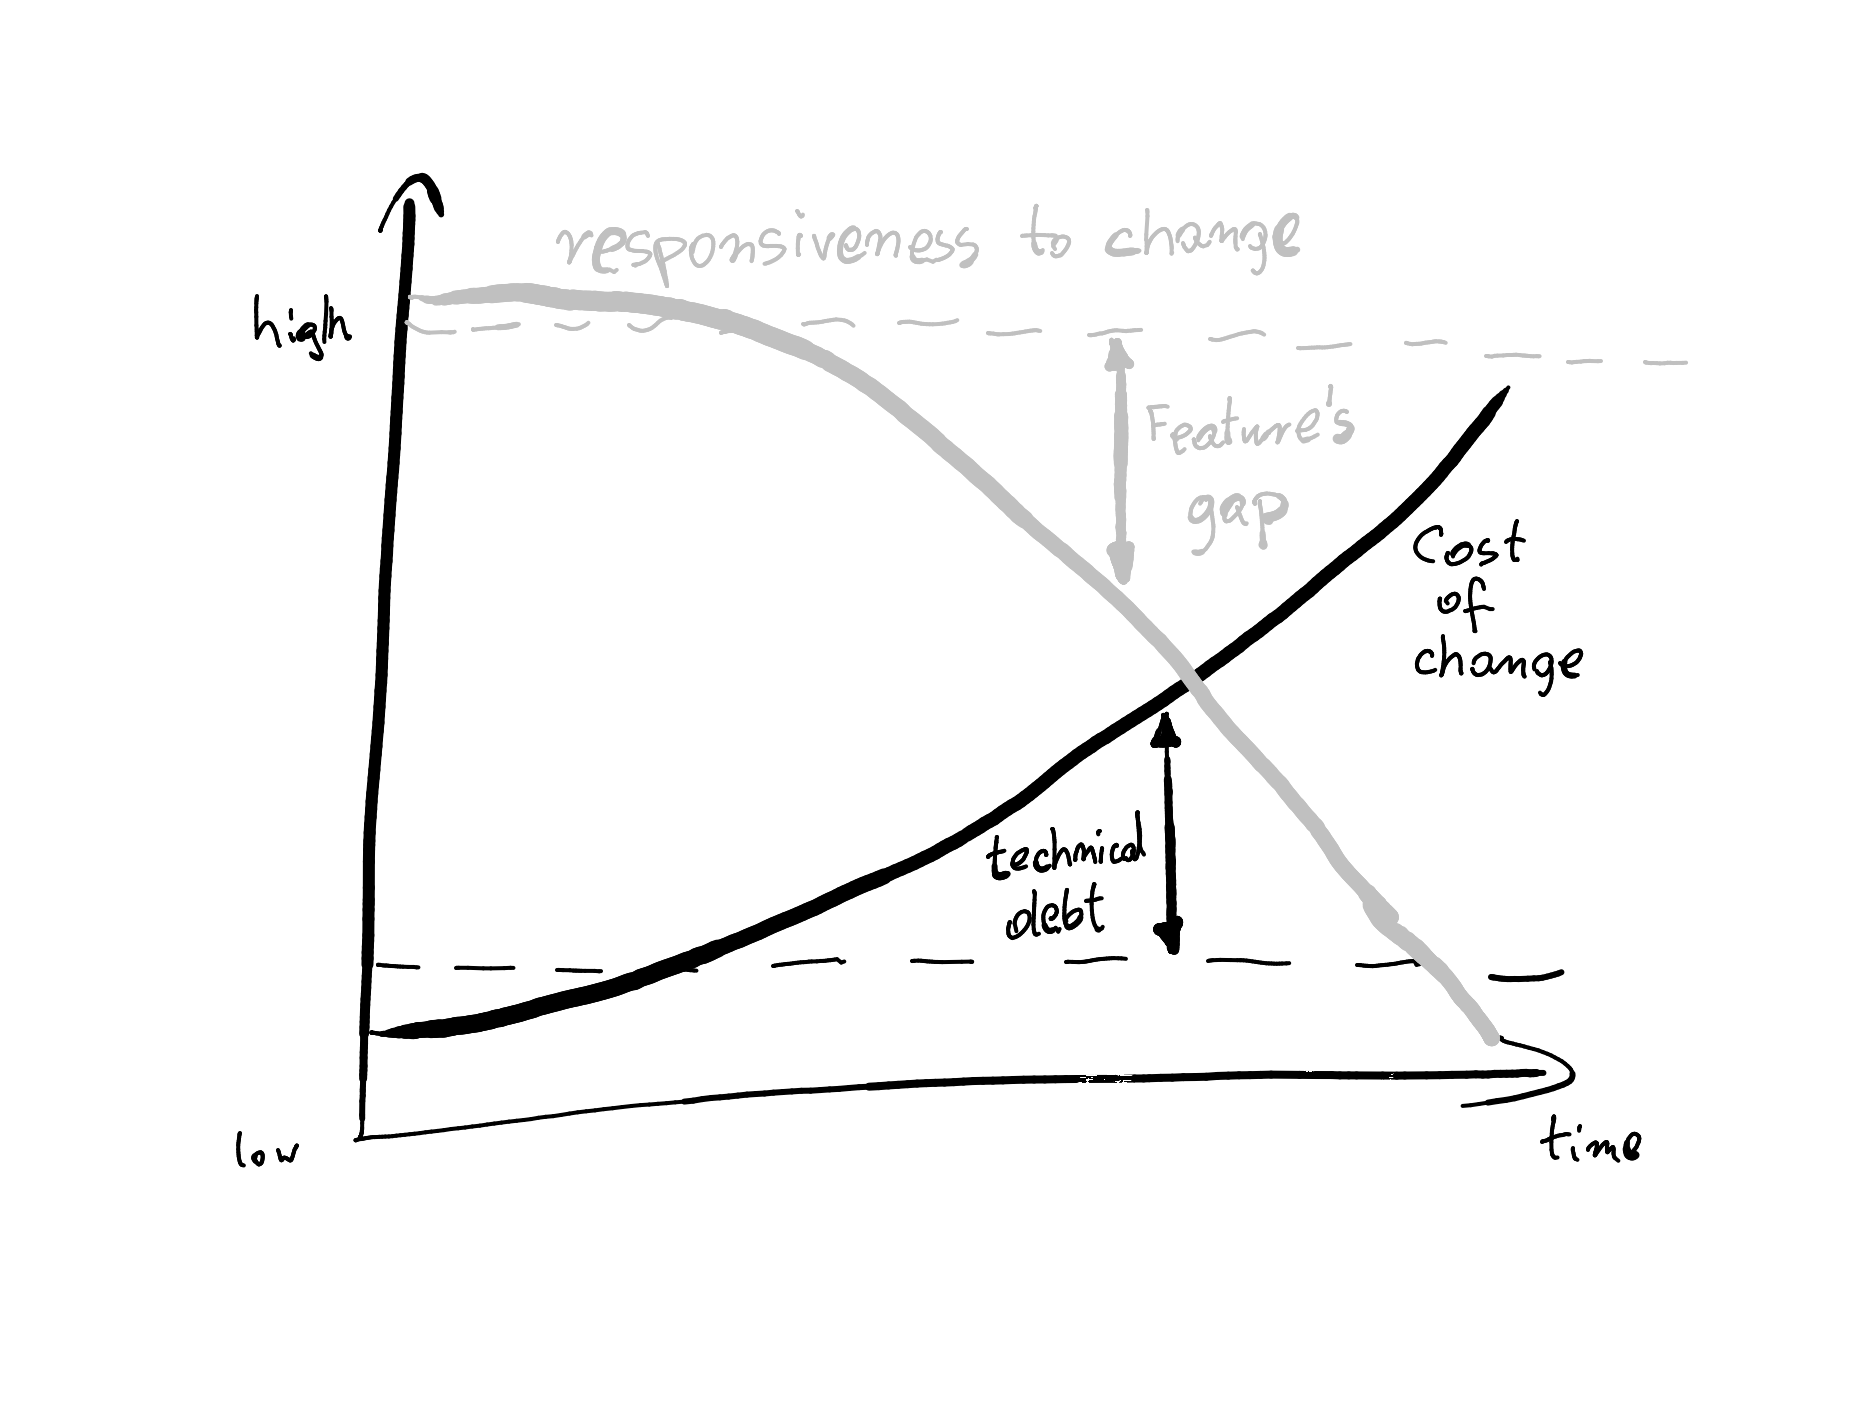 responsiveness to change
high
Feature's
gap
Cost
of
change
technical
debt
low
time